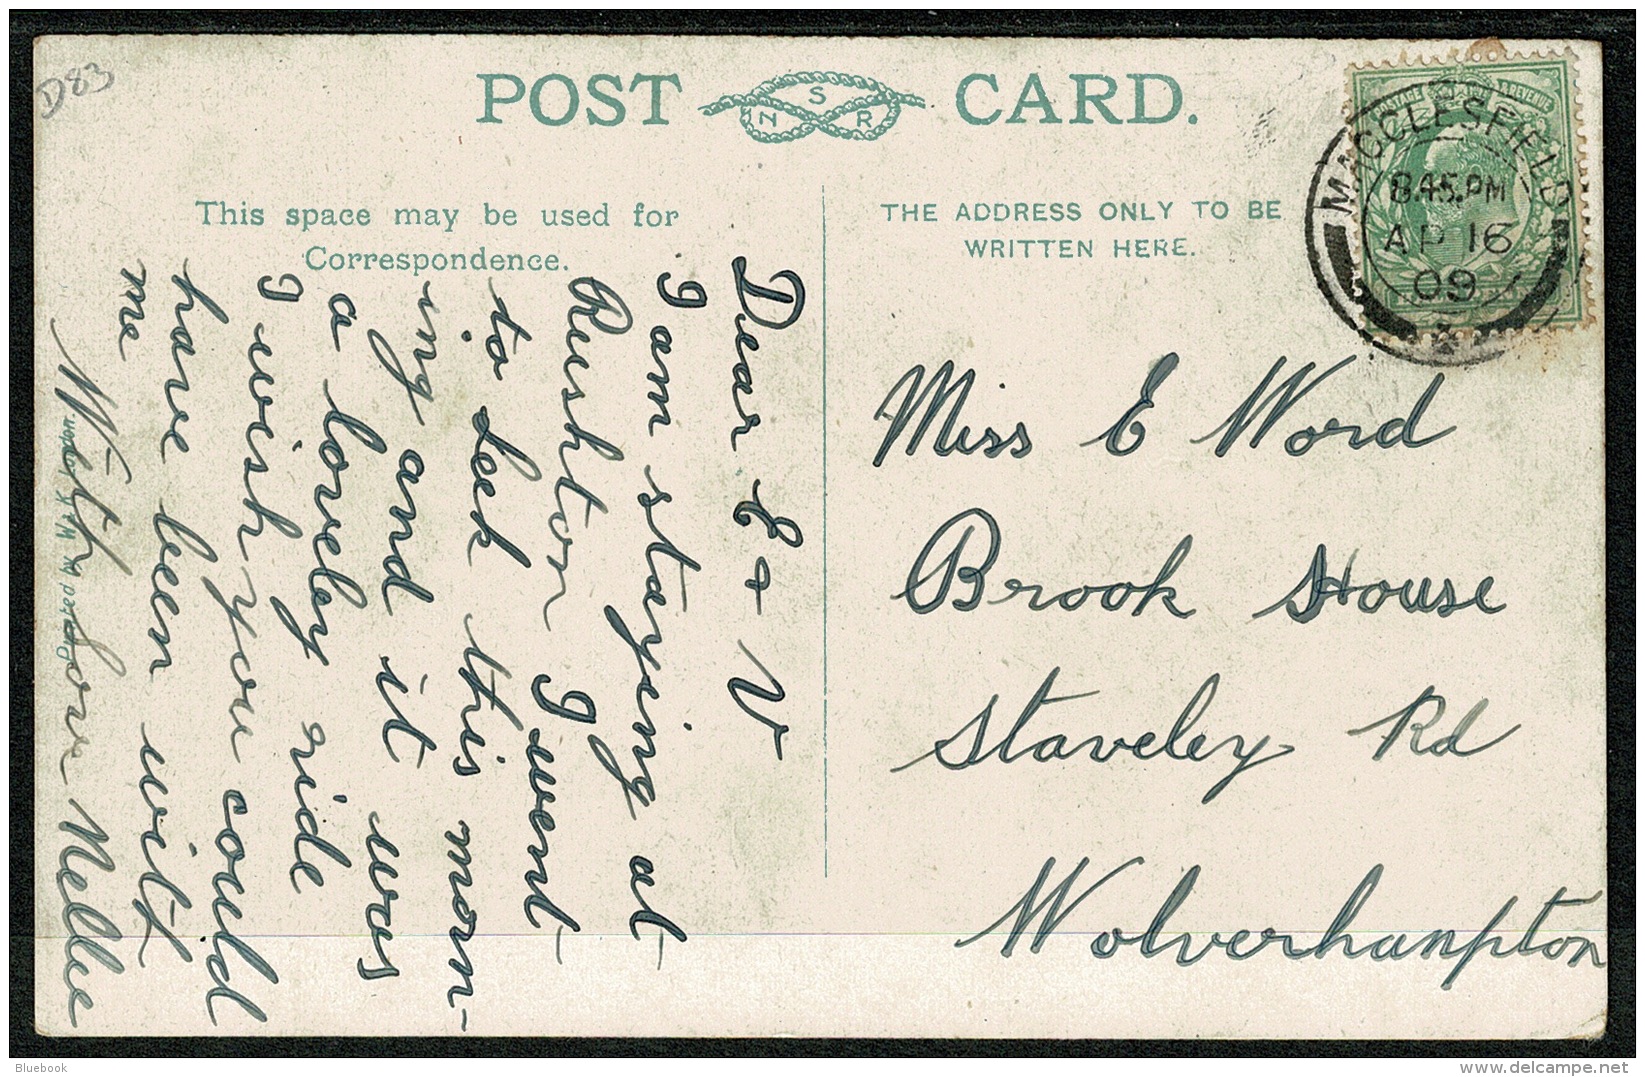 D83
POST CARD.
N S R
This space may be used for
Correspondence.
THE ADDRESS ONLY TO BE
WRITTEN HERE.
MACCLESFIELD
8.45.PM
AP 16
09
POSTAGE & REVENUE
Dear E & V
I am staying at
Rushton I went
to Leek this morn-
ing and it was
a loveley ride
I wish you could
have been wilt
me
With Love Nellie
Miss E Word
Brook House
Staveley Rd
Wolverhampton
Bluebook
delcampe.net